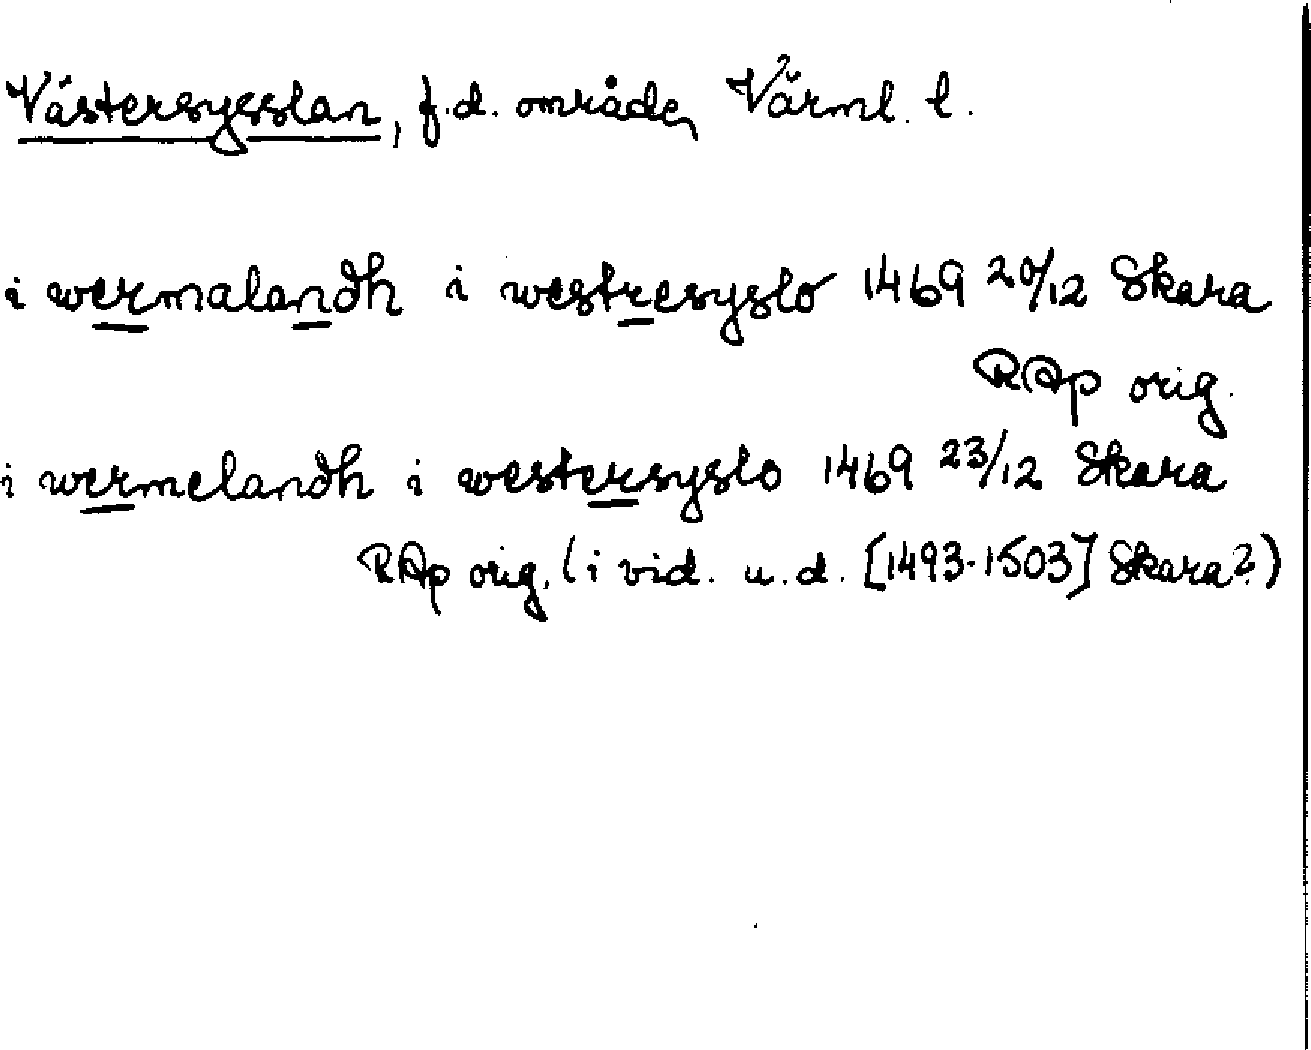 Västersysslan, f.d. område, Värml. l.
i wermalandh i westresyslo 1469 20/12 Skara
RAp orig.
i wermelandh i westersyslo 1469 23/12 Skara
RAp orig. (i vid. u.d. [1493-1503] Skara?)